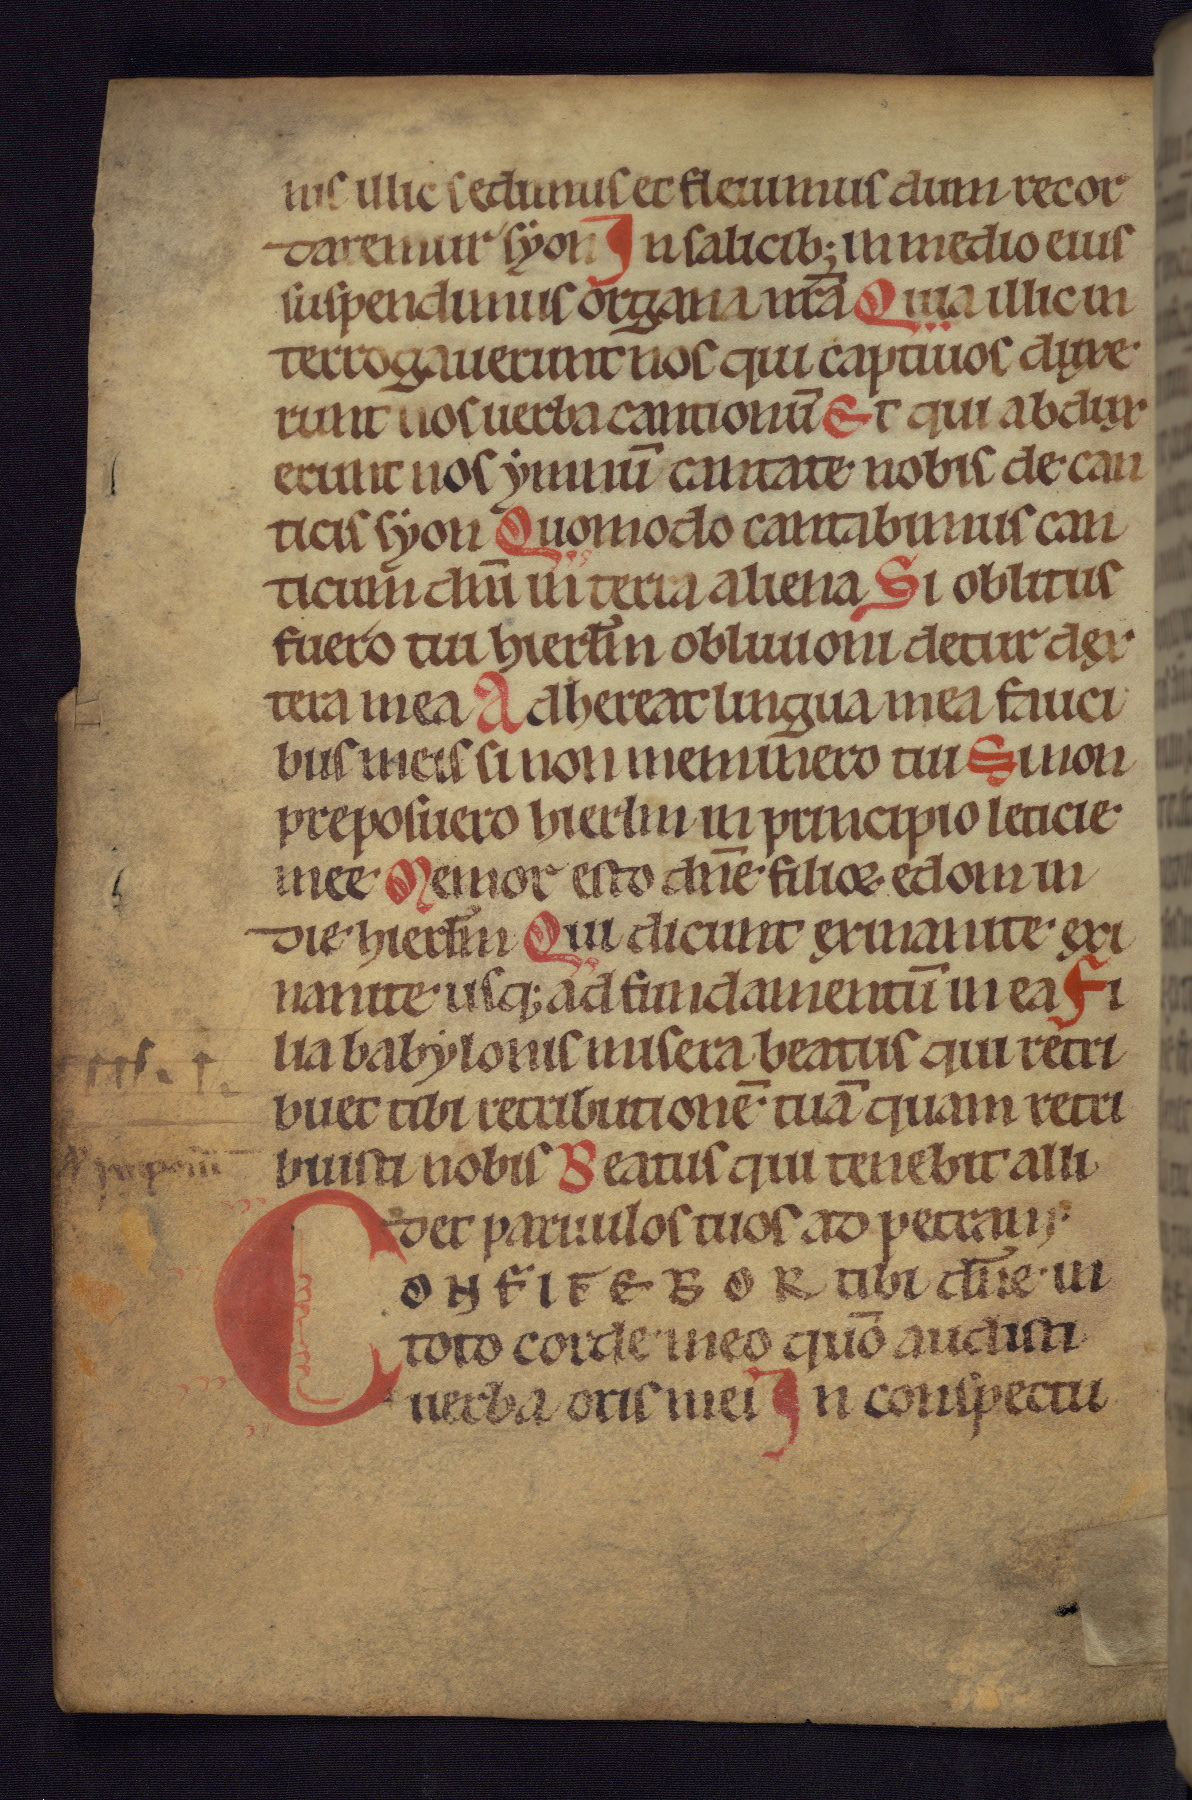 nis illic sedimus et fleuimus dum recor
daremur sẏon In salicib; in medio eius
suspendimus organa nr̄a Quia illic in
terrogauerunt nos qui captiuos duxe
runt nos uerba cantionū Et qui abdux
erunt nos ẏmnū cantate nobis de can
ticis sẏon Quomodo cantabimus can
ticum dn̄i in terra aliena Si oblitus
fuero tui hierlm̄ obliuioni detur dex
tera mea Adhereat lingua mea fauci
bus meis si non meminero tui Si non
preposuero hierlm in principio leticie
mee Memor esto dn̄e filioꝝ edom in
die hierlm̄ Qui dicunt exinanite exi
nanite usq; ad fundamentū in ea Fi
lia babẏlonis misera beatus qui retri
buet tibi retributionē tuā quam retri
buisti nobis Beatus qui tenebit alli
det paruulos tuos ad petram
CONFITEBOR tibi dn̄e in
toto corde meo quō audisti
uerba oris mei In conspectu